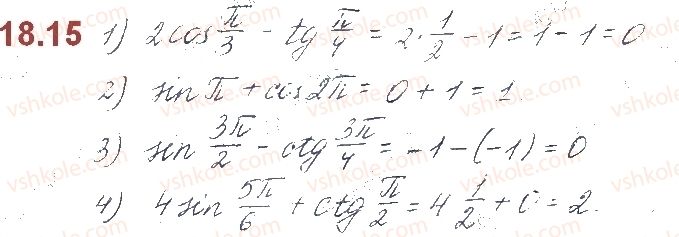 18.15 1) 2cos π/3 - tg π/4 = 2 · 1/2 - 1 = 1 - 1 = 0
2) sin π + cos 2π = 0 + 1 = 1
3) sin 3π/2 - ctg 3π/4 = -1 - (-1) = 0
4) 4 sin 5π/6 + ctg π/2 = 4 1/2 + 0 = 2.